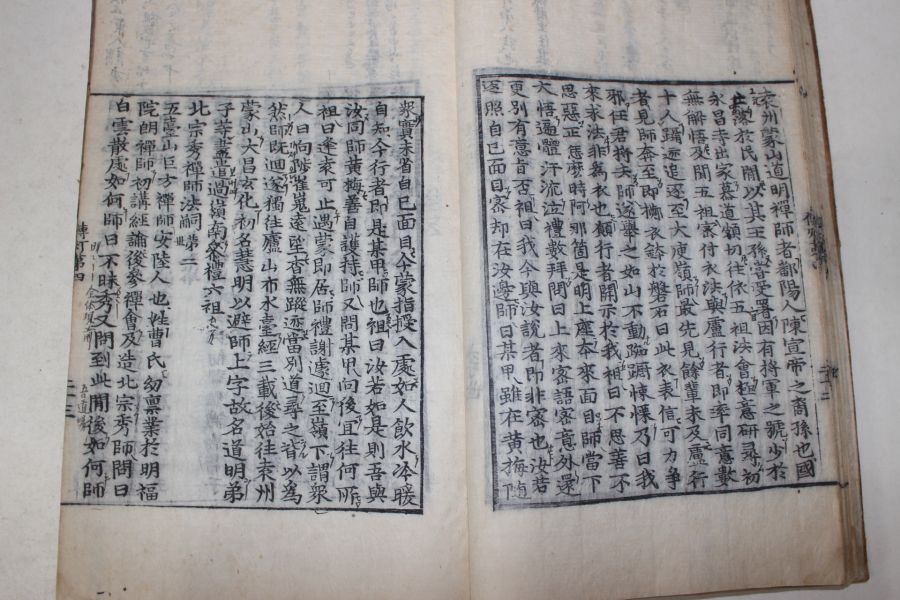 袁州蒙山道明禪師者鄱陽人陳宣帝之裔孫也國
亡落於民間以其王孫嘗受署因有將軍之號少於
永昌寺出家慕道頗切往依五祖法會極意研尋初
無解悟及聞五祖密付衣法與盧行者即率同意數
十人躡迹追逐至大庾嶺師最先見餘輩未及盧行
者見師奔至即擲衣鉢於磐石曰此衣表信可力爭
邪任君將去師遂舉之如山不動踟躕悚慄乃曰我
來求法非爲衣也願行者開示於我祖曰不思善不
思惡正恁麽時阿那箇是明上座本來面目師當下
大悟遍體汗流泣禮數拜問曰上來密語密意外還
更別有意旨否祖曰我今與汝説者即非密也汝若
返照自己面目密却在汝邊師曰某甲雖在黃梅隨
衆實未省自己面目今蒙指授入處如人飲水冷暖
自知今行者即是某甲師也祖曰汝若如是則吾與
汝同師黃梅善自護持師又問某甲向後宜往何所
祖曰逢袁可止遇蒙即居師禮謝遽迴至嶺下謂衆
人曰向陟崔嵬遠望杳無蹤迹當別道尋之皆以爲
然師既迴遂獨往廬山布水臺經三載後始往袁州
蒙山大昌玄化初名慧明以避師上字故名道明弟
子等盡遣過嶺南參禮六祖
北宗秀禪師法嗣第二世
五臺山巨方禪師安陸人也姓曹氏幼稟業於明福
院朗禪師初講經論後參禪會及造北宗秀師問曰
白雲散處如何師曰不昧秀又問到此間後如何師